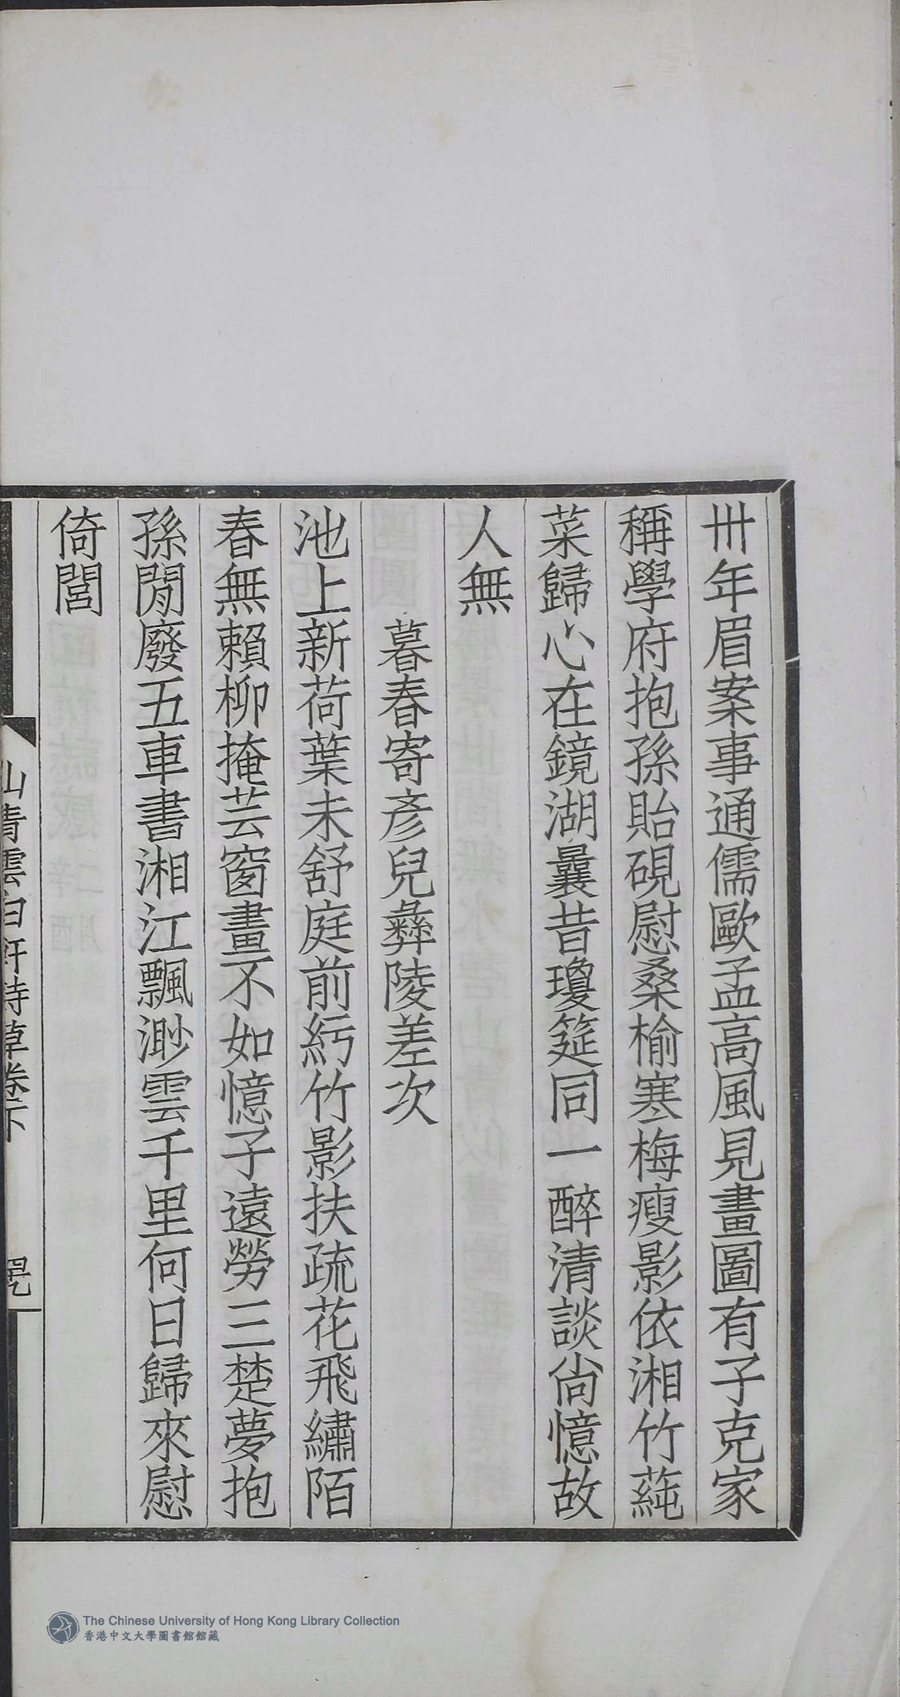 卅年眉案事通儒歐孟高風見畫圖有子克家
稱學府抱孫貽硯慰桑榆寒梅瘦影依湘竹蒓
菜歸心在鏡湖曩昔瓊筵同一醉清談尙憶故
人無
暮春寄彥兒彝陵差次
池上新荷葉未舒庭前紆竹影扶疏花飛繡陌
春無賴柳掩芸窗畫不如憶子遠勞三楚夢抱
孫閒廢五車書湘江飄渺雲千里何日歸來慰
倚閭
山青雲白軒詩草卷下
The Chinese University of Hong Kong Library Collection
香港中文大學圖書館館藏